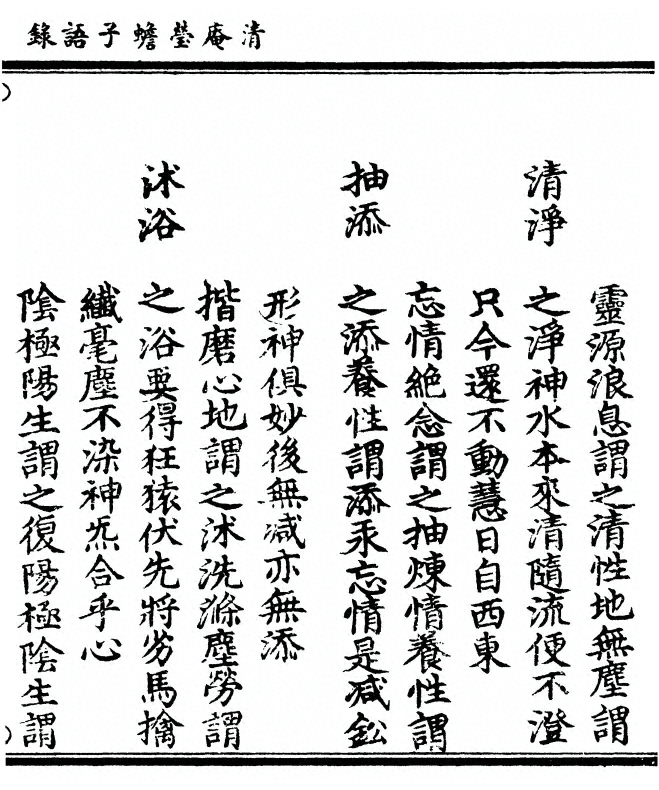 清庵瑩蟾子語錄
靈源浪息謂之清性地無塵謂
清淨
之淨神水本來清隨流便不澄
只今還不動慧日自西東
忘情絶念謂之抽煉情養性謂
抽添
之添養性謂添汞忘情是减鈆
形神俱妙後無减亦無添
揩磨心地謂之沭洗滌塵勞謂
沭浴
之浴要得狂猿伏先將劣馬擒
纖毫塵不染神炁合乎心
陰極陽生謂之復陽極陰生謂